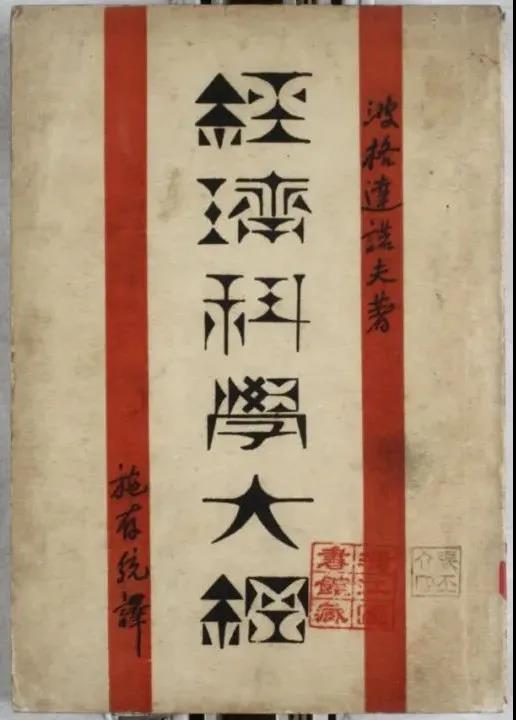 波格達諾夫著
經濟科學大綱
施存統譯
書館藏